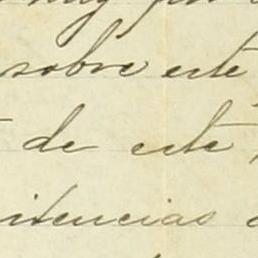 muy por
sobre este
de este
itencias